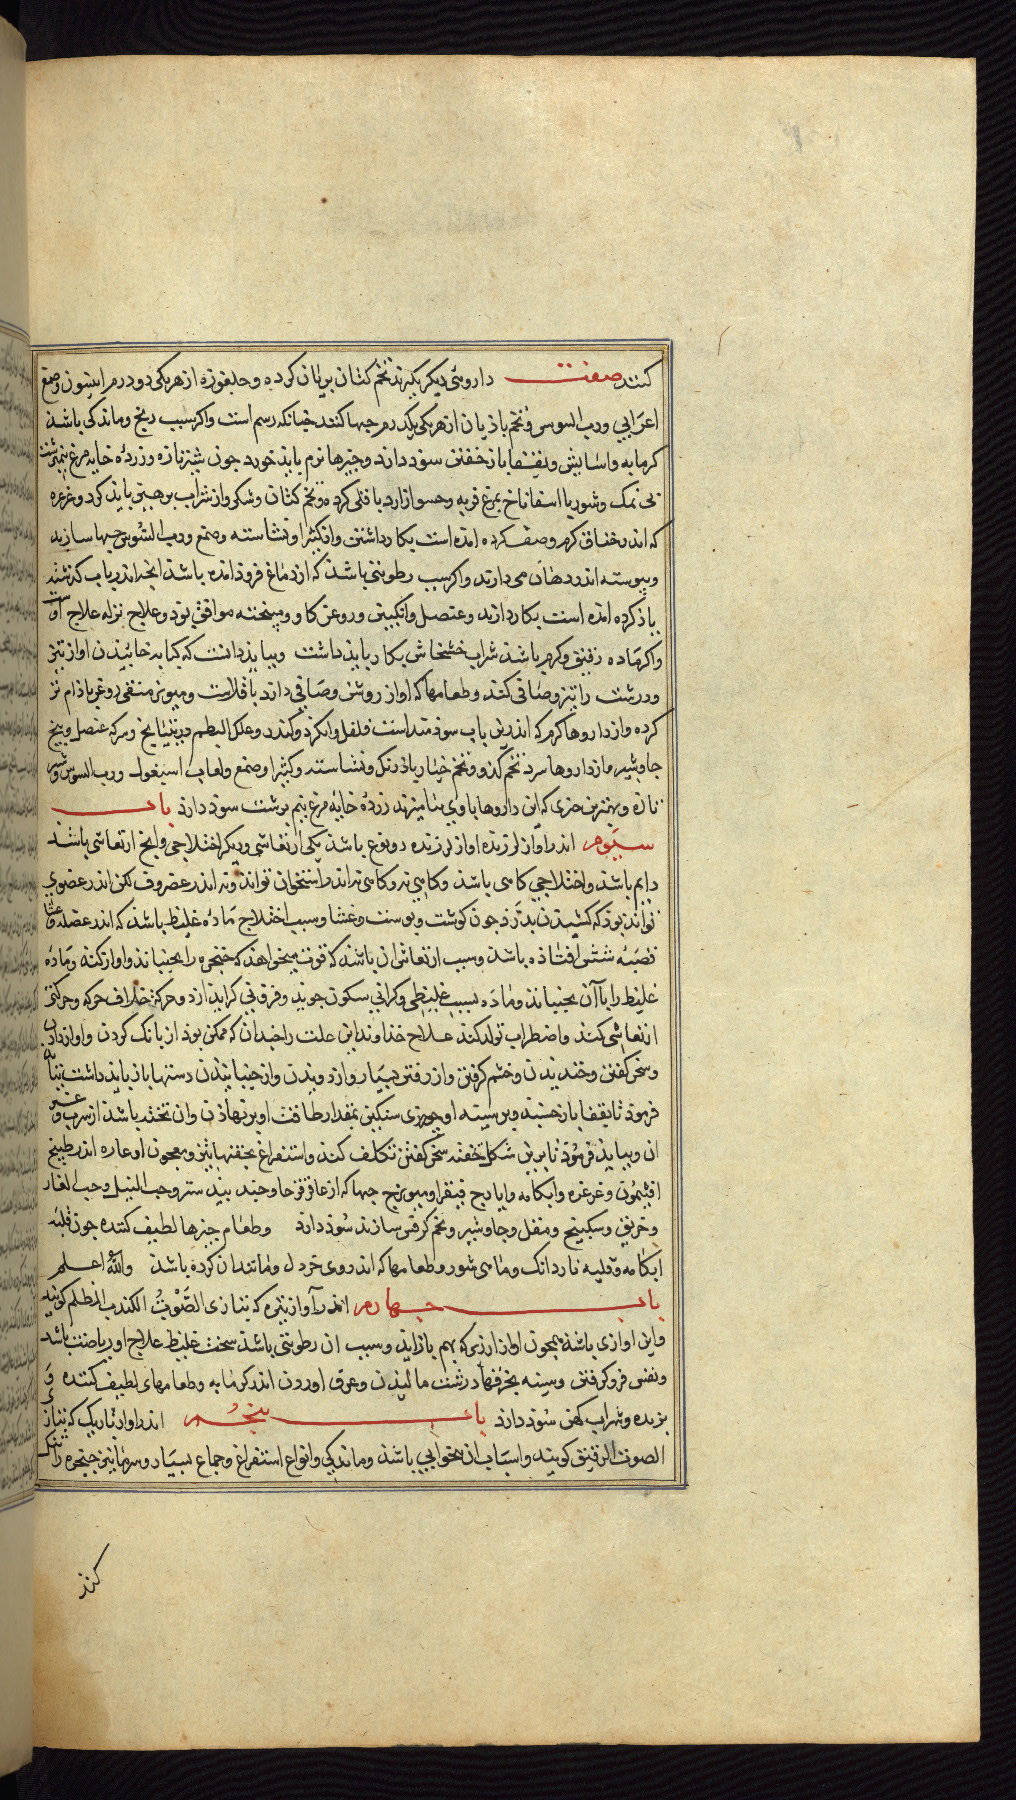 کنند صفت داروئی دیکر بکیرند تخم کتان بریان کرده و جلغوزه از هر یکی دو درم انیسون و صمغ
اعرابی و رب السوس و تخم باذیان از هر یکی یکدرم حبها کنند جنانکه رسم است واکر سبب رنج و ماندکی باشذ
کرمابه و اسایش و بقفا باز خفتن سوذ دارذ و جیزها نرم بایذ خورد جون شیر تازه و زرده خایه مرغ نیمبرشت
بی نمک و شوربا اسفاناخ بمرغ فربه و حسو از ارد باقلی کرده و تخم کتان و شکر و از شراب برهیز بایذ کرد و غرغره
که اندر خناق کرم وصف کرده امده است بکار داشتن و از کثیرا و نشاسته و صمغ و رب السوس حبها سازند
و بیوسته اندر دهان می دارند واکر سبب رطوبتی باشذ که از دماغ فروذ امده باشذ انجه اندر باب کذشته
یاذ کرده امده است بکار دارند و عنصل و انکبین و روغن کاو و میبخته موافق بوذ و علاج نزله علاج اوست
واکر ماده رقیق و کرم باشذ شراب خشخاش بکار بایذ داشت و ببایذ دانست که کبابه خائیذن اواز تیز
و درشت را تیز و صافی کند و طعامها که اواز روشن و صافی دارد باقلاست و میویز منقی بروغن باذام تر
کرده و از داروها کرم که اندرین باب سوذمند است فلفل و انکزد و کندر و علک البطم و راتینایج و سرکه عنصل و بیخ
جاوشیر و از داروها سرد تخم کدو و تخم خیار باذرنک و نشاسته و کثیرا و صمغ و لعاب اسبغول و رب السوس و شیر
تازه و بهترین جیزی که این داروها باوی بیامیزند زرده خایه مرغ نیم برشت سوذ دارذ باب
سیوم اندر اواز لرزنده اواز لرزنده دو نوع باشذ یکی ارتعاشی و دیکر اختلاجی و انج ارتعاشی باشذ
دایم باشذ و اختلاجی کاهی باشذ و کاهی نه و کاهی نه اندر استخوان نتواند و نه اندر غضروف لکن اندر عضوی
تواند بوذ که کشیذن بذیرذ جون کوشت و بوست و غشا و سبب اختلاج ماده غلیظ باشذ که اندر عضله و غشا
قصبه شش افتاذه باشذ و سبب ارتعاش ان باشذ که قوت میخواهذ که حنجره را بجنباند و اواز کند و ماده
غلیظ را با آن بجنباند و ماده بسبب غلیظی و کرانی سکون جوید و فروتنی کراید ازو حرکه بخلاف حرکه و حرکتم
ارتعاشی کند و اضطراب تولد کند علاج خذاوند این علت را جندان که ممکن بوذ از بانک کردن و اواز دادن
و سخن کفتن و خندیدن و خشم کرفتن و از رفتن بسیار و از دویدن و از جنبانیذن دستها باز بایذ داشت بتنا
فرموذ تا بقفا باز خسبذ و بر سینه او جیزی سنکین بمقدار طاقت او برنهاذن و ان تخته باشذ از سرب و غیر
ان و ببایذ فرموذ تا برین شکل خفته سخن کفتن تکلف کند و استفراغ بحقنهاء تیز و معجون لوعاره اندر طبیخ
افتیمون و غرغره و ابکامه و ایارج فیقرا و میویزج حبها که از عاقرقرحا و جند بیذستر و حب النیل و حب الغار
و خربق و سکبینج و مقل و جاوشیر و تخم کرفس سازند سوذ دارد و طعام جیزها لطیف کننده جون قلیه
ابکامه و قلیه ناردانک و ماهی شور و طعامها که اندر وی خردل و مانند ان کرده باشذ والله اعلم
باب جهارم اندر آواز تیره که بتازی الصَّوْتُ الکندر المظلم کویند
و این اوازی باشذ همجون اواز ارزیز که بهم باز زند و سبب ان رطوبتی باشذ سخت غلیظ علاج او ریاضت باشد
و نفس فرو کرفتن و سینه بخرقهاء درشت مالیذن و عرق اوردن اندر کرمابه و طعامهای لطیف کننده و
برنده و شراب کهن سوذ دارذ باب بنجم اندر اواز تاریک که بتازی
الصوت الرقیق کویند و اسباب ان بیخوابی باشذ و ماندکی و انواع استفراغ و جماع بسیار و سرما نیز حنجره را تنک
کند